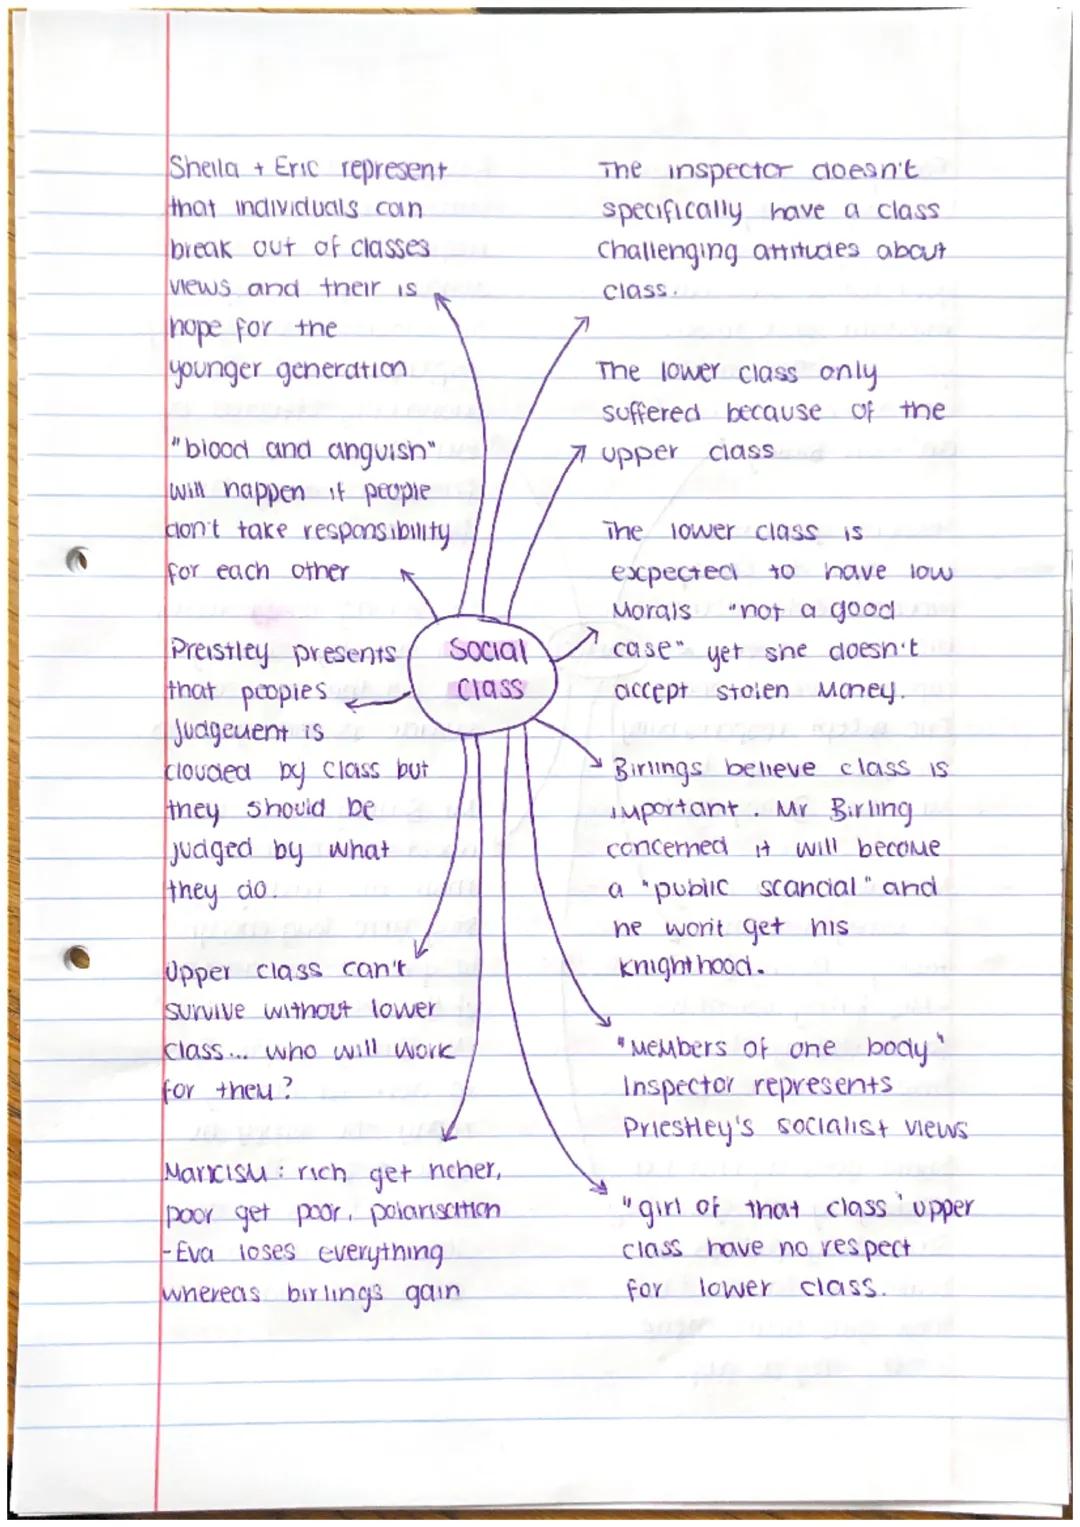 Sheila + Eric represent
that individuals can
break out of classes
views and their is
hope for the
younger generation
"blood and anguish"
will happen if people
don't take responsibility
for each other
Preistley presents
that peoples
judgement is
clouded by class but
they should be
judged by what
they do.
Upper class can't
survive without lower
class... who will work
for them?
Marxism: rich get richer,
poor get poor, polarisation
-Eva loses everything
whereas birlings gain
Social
Class
The inspector doesn't
specifically have a class
Challenging attitudes about
class.
The lower class only
suffered because of the
upper class
The lower class is
expected to have low
Morals "not a good
case" yet she doesn't
accept stolen money.
Birlings believe class is
important. Mr Birling
concerned it will become
a "public scandal" and
he won't get his
knighthood.
"Members of one body"
Inspector represents
Priestley's socialist views
"girl of that class' upper
class have no respect
for lower class.